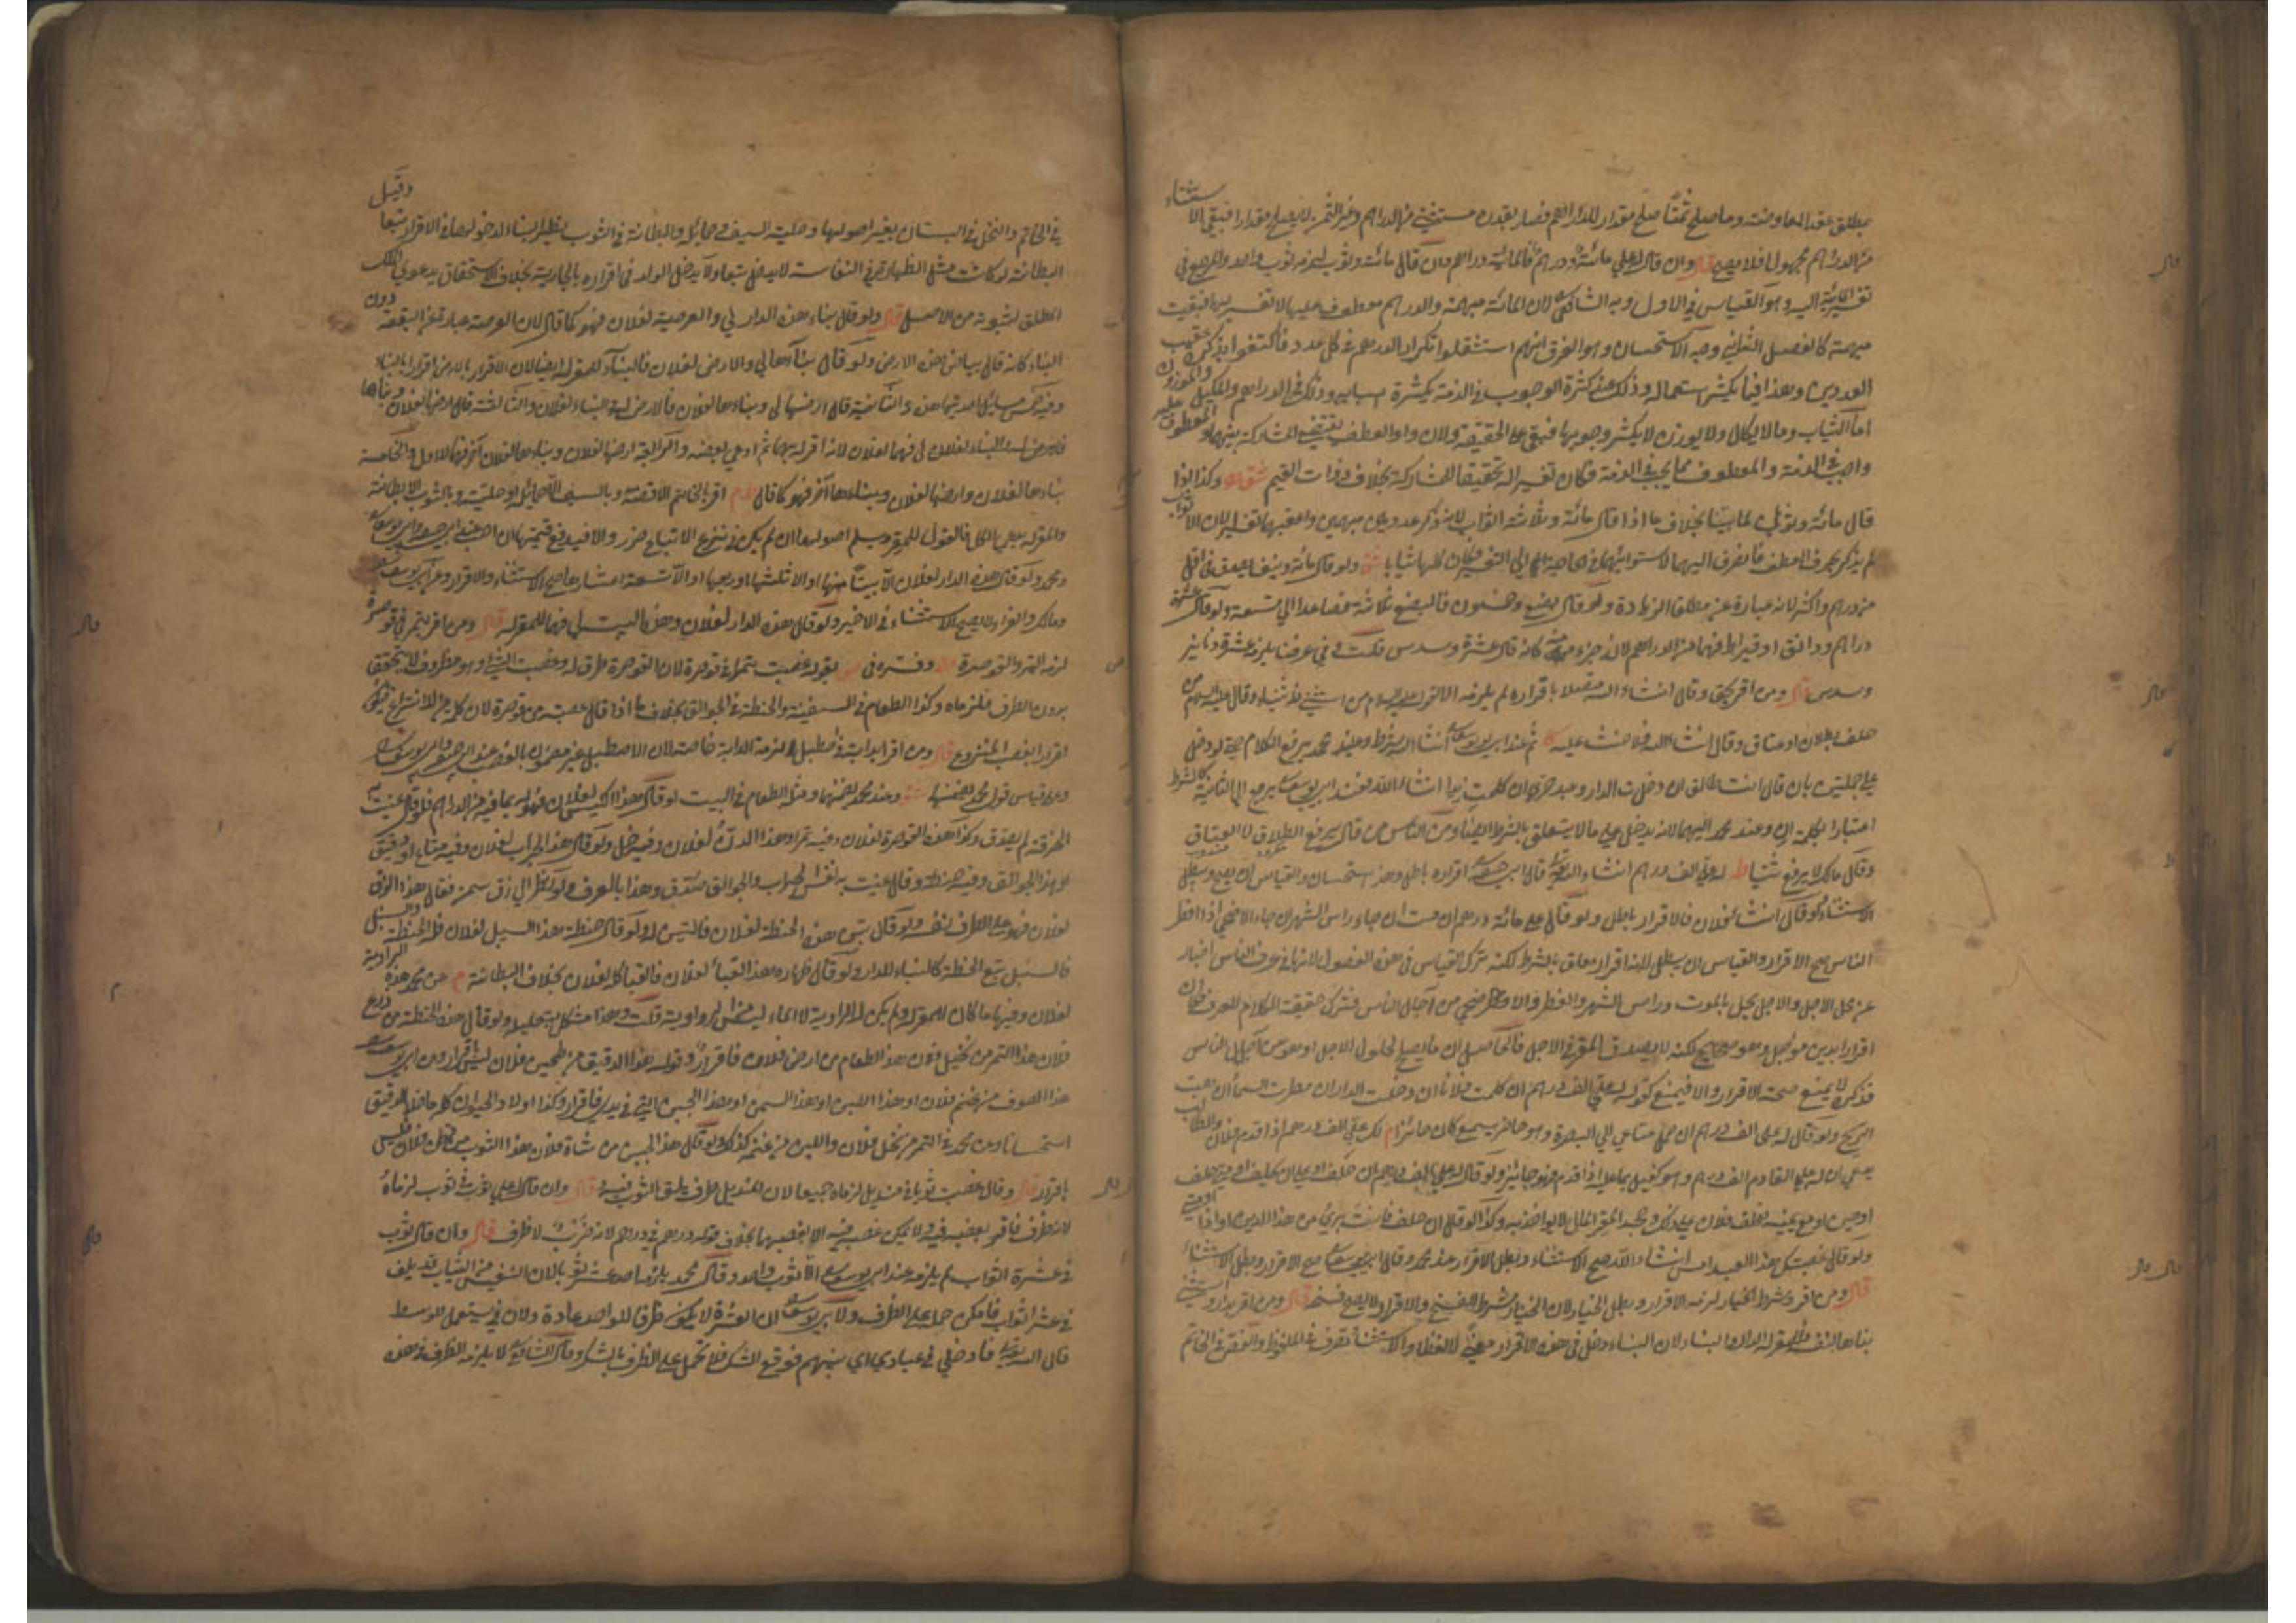 بمطلق عقد المعاوضة وما صلح ثمنا صلح مقدار للدراهم فصار بقدره مستثنى من الدراهم وغير الثمن لا يصلح مقدارا فبقي الاستثناء
من الدراهم مجهولا فلا يصح قال وان قال له علي مائة ودرهم فالمائة دراهم وان قال مائة وثوب لزمه ثوب واحد والمرجع في
تفسير المائة اليه وهو القياس في الاول وبه الشافعي لان المائة مبهمة والدرهم معطوف عليها لا تفسير لها فبقيت
مبهمة كالفصل الثاني وجه الاستحسان وهو الفرق انهم استثقلوا تكرار الدرهم في كل عدد فاكتفوا بذكره عقيب
العددين وهذا فيما يكثر استعماله وذلك عند كثرة الوجوب في الذمة بكثرة اسبابه وذلك في الدراهم والمكيل والموزون
اما الثياب وما لا يكال ولا يوزن لا يكثر وجوبها فبقي على الحقيقة ولان واو العطف يقتضي المشاركة بينهما والمعطوف عليه
واجب في الذمة والمعطوف مما يجب في الذمة فكان تفسيرا له تحقيقا للمشاركة بخلاف ذوات القيم وكذا اذا
قال مائة وثوبان لما بينا بخلاف ما اذا قال مائة وثلاثة اثواب لانه ذكر عددين مبهمين واعقبها تفسيرا لان الاثواب
لم يذكر بحرف العطف فانصرف اليهما لاستوائهما في الحاجة الى التفسير فكان كلها ثيابا ولو قال مائة ونيف يصدق في اقل
من درهم واكثر لانه عبارة عن مطلق الزيادة ولو قال بضع وخمسون فالبضع ثلاثة فصاعدا الى تسعة ولو قال عشرة
دراهم ودانق او قيراط فهما من الدراهم لانه جزء منه كانه قال عشرة وسدس قلت وفي عرفنا يلزمه عشرة دنانير
وسدس قال ومن اقر بحق وقال ان شاء الله متصلا باقراره لم يلزمه الاقرار من استثنى فله ثنياه وقال عليه السلام من
حلف بطلاق او عتاق وقال ان شاء الله فلا حنث عليه ثم عند ابي يوسف ان شاء الله شرط وعند محمد يرفع الكلام حتى لو دخل
على جملتين بان قال انت طالق ان دخلت الدار وعبدي حر ان كلمت زيدا ان شاء الله فعند ابي يوسف يرجع الى الثانية كالشرط
اعتبارا بكلمة ان وعند محمد اليهما لانه يدخل على ما لا يتعلق بالشرط ايضا ومن الناس من قال يرفع الطلاق لا العتاق
وقال مالك لا يرفع شيئا له علي الف درهم ان شاء الله قال ابو حنيفة اقراره باطل وهذا استحسان والقياس ان يصح ويبطل
الاستثناء ولو قال ان شاء فلان فالاقرار باطل ولو قال علي مائة درهم ان مت او ان جاء رأس الشهر او جاء الاضحى او افطر
الناس صح الاقرار والقياس ان يبطل لانه اقرار معلق بالشرط لكنه ترك القياس في هذه الفصول لانها في عرف الناس اخبار
عن محل الاجل والاجل يحل بالموت ورأس الشهر والفطر والاضحى من آجال الناس فتترك حقيقة الكلام للعرف فكان
اقرارا بدين مؤجل وهو صحيح لكنه لا يصدق المقر في الاجل فالحاصل ان ما يصلح لحلول الاجل او هو من آجال الناس
فذكره لا يمنع صحة الاقرار والا فيمنع كقوله له علي الف درهم ان كلمت فلانا او دخلت الدار او مطرت السماء او هبت
الريح ولو قال له علي الف درهم ان حمل متاعي الى البصرة وهو حاضر يسمع كان جائزا لك علي الف درهم اذا قدم فلان والطالب
يدعي ان له على القادم الف درهم وهو كفيل بما عليه اذا قدم فهو جائز ولو قال له علي الف درهم ان حلف او على ان يحلف او حين حلف
او حين او مع يمينه فحلف فلان على ذلك وجحد المقر المال لا يؤاخذ به وكذا لو قال ان حلف فانت بريء من هذا الدين او اذا
ولو قال غصبتك هذا العبد امس ان شاء الله صح الاستثناء وبطل الاقرار عند محمد وقال ابو يوسف صح الاقرار وبطل الاستثناء
قال ومن اقر وشرط الخيار لزمه الاقرار وبطل الخيار لان الخيار شرط للفسخ والاقرار لا يحتمل الفسخ قال ومن اقر بدار واستثنى
بناءها لنفسه فللمقر له الدار والبناء لان البناء دخل في هذه الاقرار معنى لا لفظا والاستثناء تصرف في الملفوظ والفص في الخاتم
في الخاتم والنخل في البستان بغير اصولها وحلية السيف وحمائله والبطانة في الثوب نظير البناء لدخولها في الاقرار تبعا وقيل
البطانة لو كانت مثل الظهارة في النفاسة لا يدخل تبعا ولا يدخل الولد في اقراره بالجارية بخلاف الاستحقاق بدعوى الملك
المطلق لثبوته من الاصل قال ولو قال بناء هذه الدار لي والعرصة لفلان فهو كما قال لان العرصة عبارة عن البقعة دون
البناء كانه قال بياض هذه الارض ولو قال بناؤها لي والارض لفلان فالبناء للمقر له ايضا لان الاقرار بالارض اقرار بالبناء
وفيه خمس مسائل احديها هذه والثانية قال ارضها لي وبناءها لفلان فالارض له والبناء لفلان والثالثة قال ارضها لفلان وبناءها
لي فهما لفلان لانه اقر له بهما ثم ادعى بعضه والرابعة ارضها لفلان وبناءها لفلان آخر فهما للاول والخامسة
بناءها لفلان وارضها لفلان وبناءها لآخر فهو كما قال اقر بالخاتم الا فصه وبالسيف الا حمائله او حليته وبالثوب الا بطانته
والمقر له يدعي الكل فالقول للمقر ويسلم اصولها ان لم يكن في نزع الاتباع ضرر والا فيدفع قيمتها
ومحمد ولو قال هذه الدار لفلان الا بيتا منها او الا ثلثها او ربعها او الا تسعة اعشارها صح الاستثناء والاقرار وعن ابي يوسف
ومالك والفراء لا يصح الاستثناء في الاخير ولو قال هذه الدار لفلان وهذا البيت لي فهما للمقر له قال ومن اقر بتمر في قوصرة
لزمه التمر والقوصرة وفسره في بقوله غصبت تمرا في قوصرة لان القوصرة ظرف له وغصب الشيء وهو مظروف لا يتحقق
بدون الظرف فلزماه وكذا الطعام في السفينة والحنطة في الجوالق بخلاف ما اذا قال غصبته من قوصرة لان كلمة من للانتزاع فيكون
اقرارا بغصب المنزوع قال ومن اقر بدابة في اصطبل لزمه الدابة خاصة لان الاصطبل غير مضمون بالغصب عند ابي حنيفة وابي يوسف
وعلى قياس قول محمد يضمنها وعند محمد يضمنهما ومثله الطعام في البيت لو قال هذا الكيس لفلان فهو له بما فيه من الدراهم فلو قال عنيت به
الخرقة لم يصدق وكذا هذه القوصرة لفلان وفيه تمر او هذا الدن لفلان وفيه خل ولو قال هذا الجراب لفلان وفيه متاع او دقيق
او هذا الجوالق وفيه حنطة وقال عنيت به نفس الجراب والجوالق صدق وهذا بالعرف ولو نظر الى زق سمن فقال هذا الزق
لفلان فهو على الظرف نفسه ولو قال تبن هذه الحنطة لفلان فالتبن له ولو قال حنطة هذا السنبل لفلان فله الحنطة والسنبل
فالسنبل تبع الحنطة كالبناء للدار ولو قال ظهارة هذا القباء لفلان فالقباء كله لفلان بخلاف البطانة عن محمد هذه الراوية
لفلان وفيها ما كان للمقر له ولم يكن له الراوية لا الماء قلت وهذا مشكل ولو قال هذه الحنطة من زرع
فلان هذا التمر من نخيل فلان هذا الطعام من ارض فلان فاقرار وقوله هذا الدقيق من طحين فلان ليس باقرار وعن ابي يوسف
هذا الصوف من غنم فلان او هذا اللبن او هذا السمن او هذا الجبن التي في يدي فاقرار وكذا اولاد الحيوان كله ما خلا الرقيق
استحسانا وعن محمد في التمر من نخل فلان واللبن من غنمه كذلك ولو قال هذا الجبن من شاة فلان هذا الثوب من فلان فليس
باقرار قال وقال غصبت ثوبا في منديل لزماه جميعا لان المنديل ظرف يلف الثوب فيه قال وان قال له علي ثوب في ثوب لزماه
لانه ظرف فاقر بغصبه فيه ولا يمكن غصبه فيه الا بغصبهما بخلاف قوله درهم في درهم لانه ضرب لا ظرف قال وان قال ثوب
في عشرة اثواب لم يلزمه عند ابي يوسف الا ثوب واحد وقال محمد يلزمه احد عشر ثوبا لان النفيس من الثياب قد يلف
في عشرة اثواب فامكن حمله على الظرف ولابي يوسف ان العشرة لا يكون ظرفا للواحد عادة ولان في يستعمل للوسط
قال الله تعالى فادخلي في عبادي اي بينهم فوقع الشك فلا يحمل على الظرف بالشك وقال الشافعي لا يلزمه الظرف في هذه